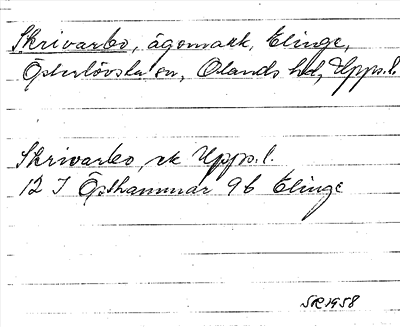 Skrivarbo, ägomark, Elinge,
Österlövsta sn, Olands hd, Upps.l.
Skrivarbo, ek Upps.l.
12 I Östhammar 9b Elinge
SR 1958